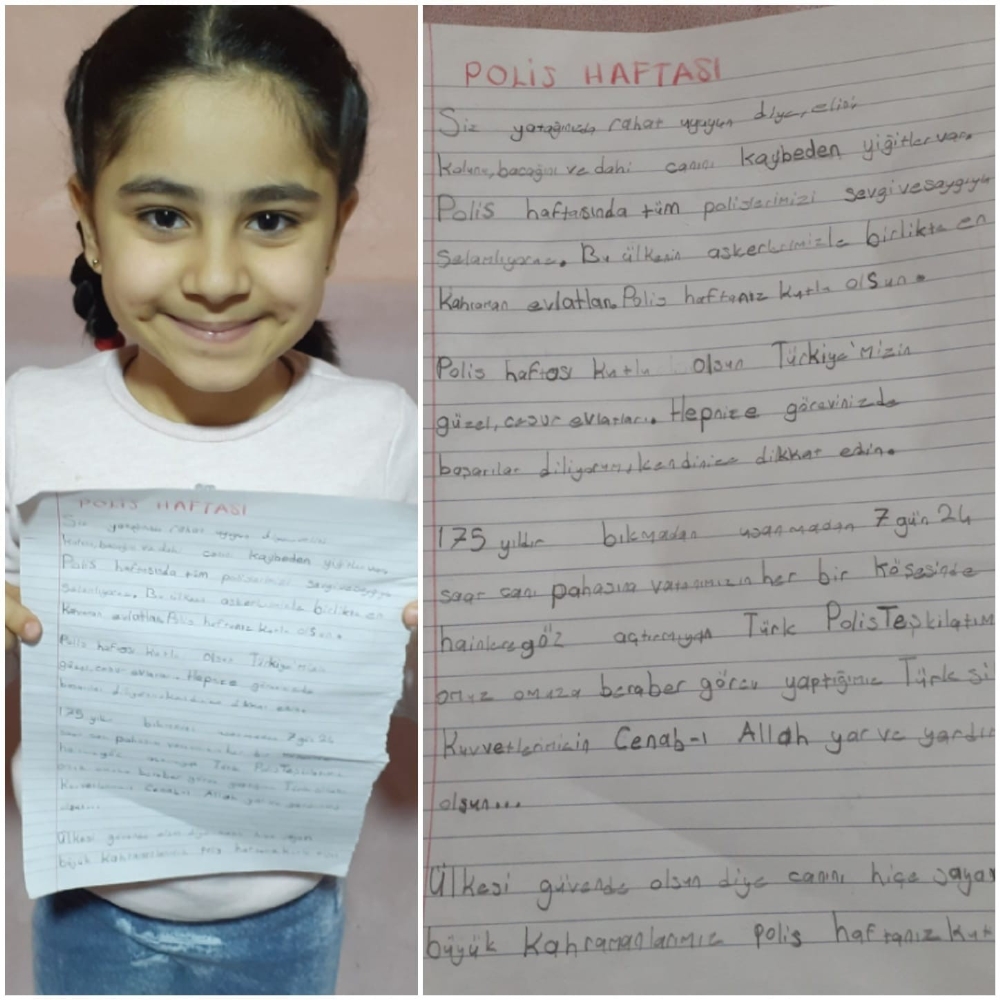 POLİS HAFTASI
Siz yatağınızda rahat uyuyun diye, elini
kolunu, bacağını ve dahi canını kaybeden yiğitler var.
Polis haftasında tüm polislerimizi sevgi ve saygıyla
Selamlıyoruz. Bu ülkenin askerlerimizle birlikte en
kahraman evlatları Polis haftanız kutlu olsun.
Polis haftası kutlu olsun Türkiye'mizin
güzel, cesur evlatları. Hepnize görevinizde
başarılar diliyorum, kendinize dikkat edin.
175 yıldır bıkmadan usanmadan 7 gün 24
saat canı pahasına vatanımızın her bir köşesinde
hainlere göz açtırmayan Türk Polis Teşkilatım
omuz omuza beraber görev yaptığımız Türk si
Kuvvetlerimizin Cenab-ı Allah yar ve yardı
olsun...
Ülkesi güvende olsun diye canını hiçe sayan
büyük kahramanlarımız polis haftanız kut